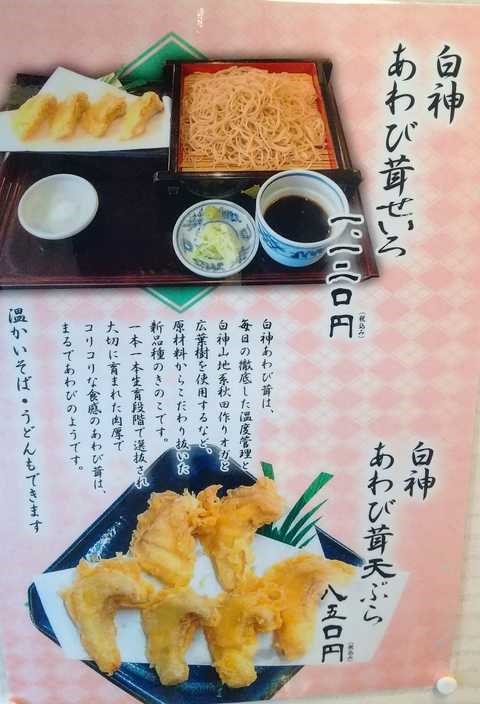 白神
あわび茸せいろ
一、一二〇円
(税込み)
白神あわび茸は、
毎日の徹底した温度管理と
白神山地系秋田作りオガと
広葉樹を使用するなど、
原材料からこだわり抜いた
新品種のきのこです。
一本一本生育段階で選抜され
大切に育まれた肉厚で
コリコリな食感のあわび茸は、
まるであわびのようです。
温かいそば・うどんもできます
白神
あわび茸天ぷら
八五〇円
(税込み)